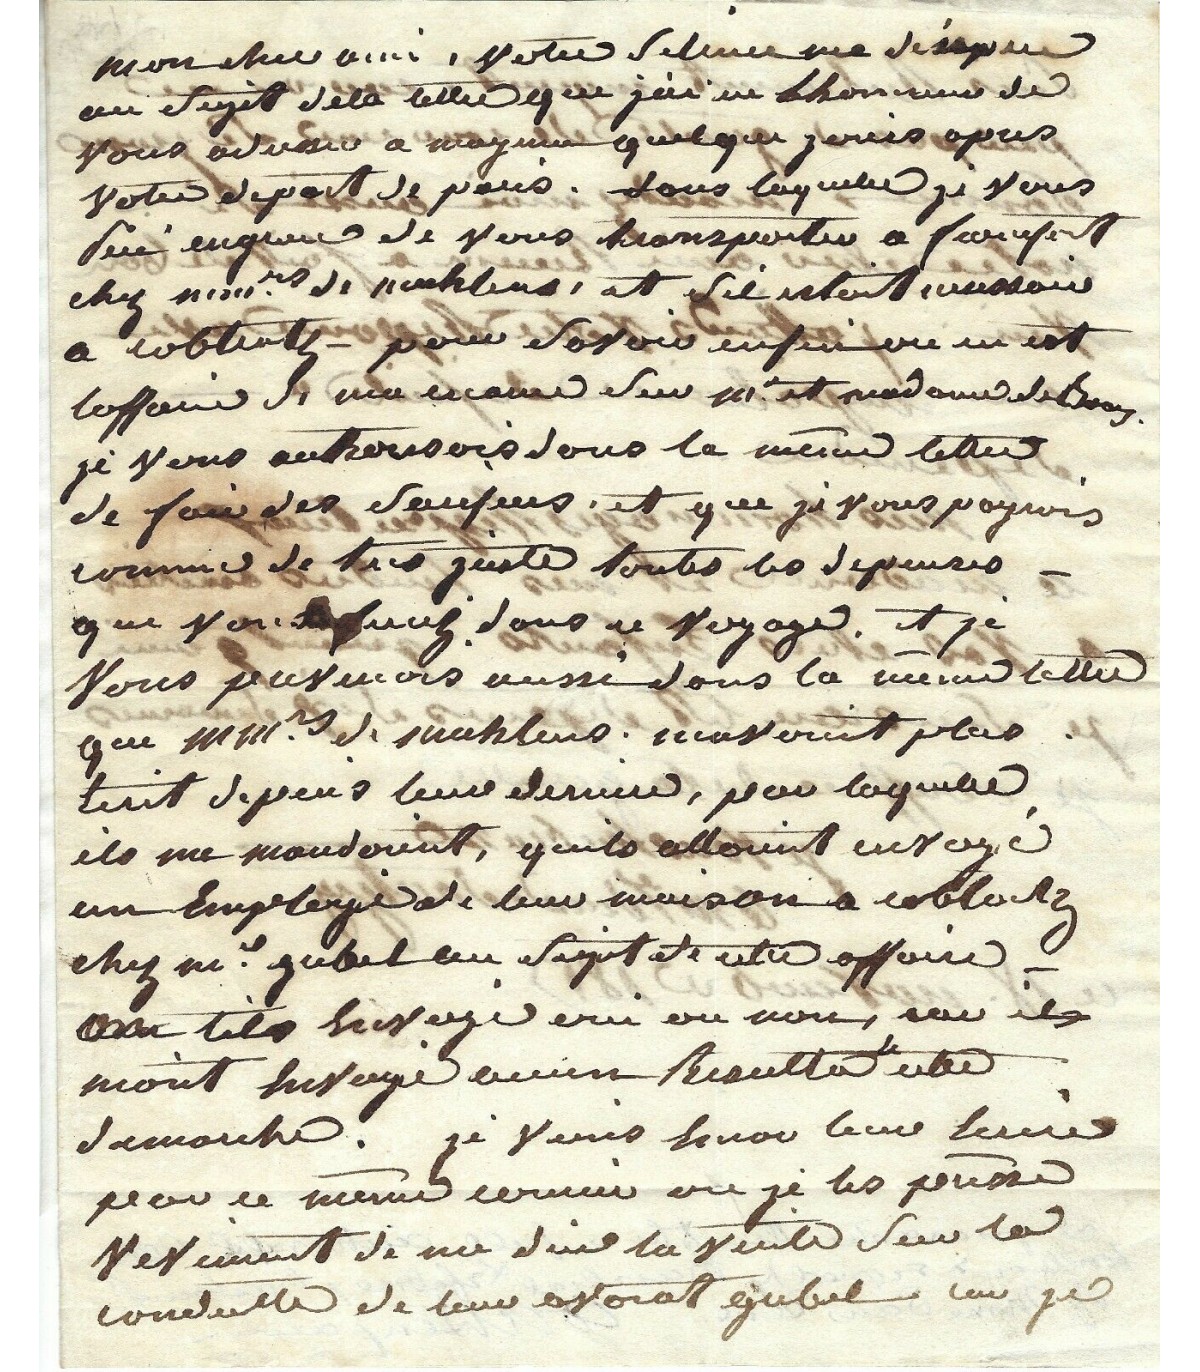 mon cher ami, votre silence me
au sujet dela lettre que jai eu Lhonneur de
vous adresser a mayence quelque jours apres
votre depart de paris. dans laquelle je vous
de vous transporter a francfort
chez mm.rs de mahlens, et sil estoit necessaire
a coblentz – pour savoir enfin ou en est
laffaire de ma creance sur mr. et madame de
je vous authorisois dans la même lettre
de faire des et que je vous payrois
comme de tres juste toutes les depenses –
que vous feriez dans ce voyage. et je
vous prevenois aussi dans la même lettre
que mm.rs de mahlens. mavoint plus
Ecrit depuis leur derniere, par laquelle
ils me mandoint, quils alloint envoyé
un Employé de leur maison a coblentz
chez mr. gubel au sujet de cette affaire –
tils Envoyé oui ou non, car ils
mont Envoyé aucun Resultat de cette
demarche. je viens Encor leur Ecrire
par ce même courier ou je les presse
vivement de me dire la verité sur la
conduitte de leur avocat gubel car je